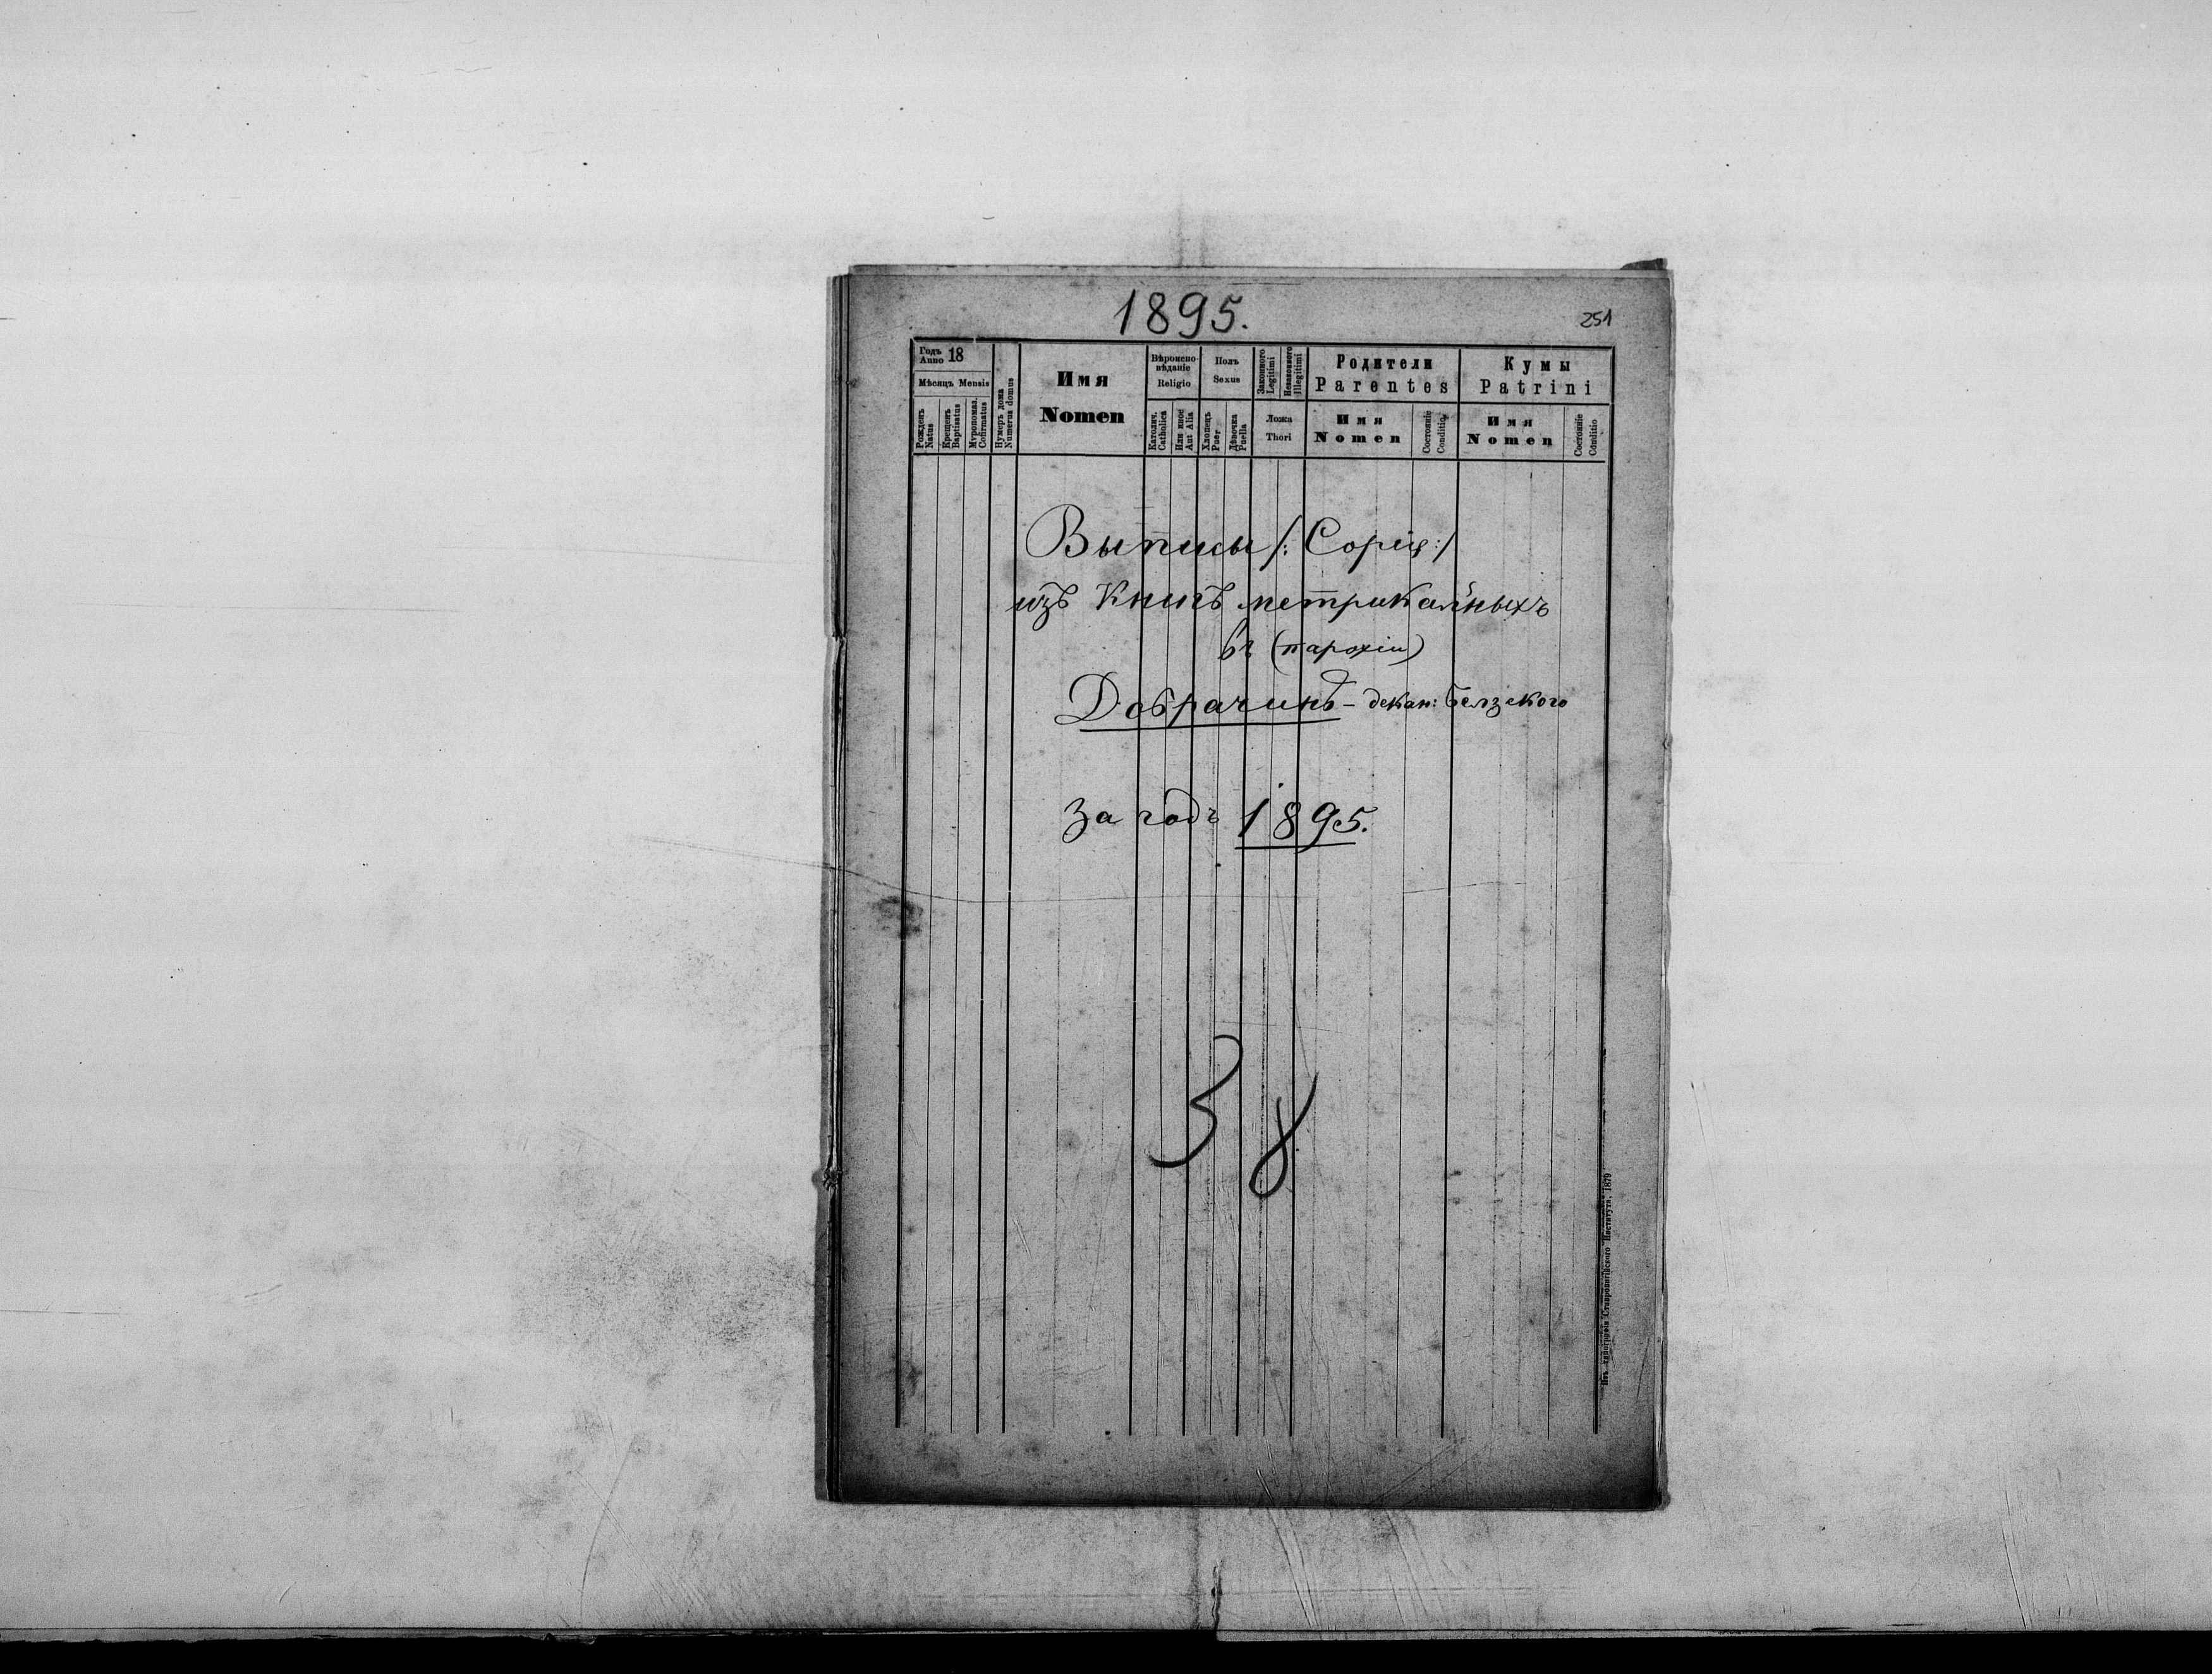 1895.
251
Годъ
Anno 18
Мѣсяцъ Mensis
Рожденъ
Natus
Крещенъ
Baptisatus
Мѵропомаз.
Cofirmatus
Нумеръ дома
Numerus domus
Имя
Nomen
Вѣроиспо-
вѣданіе
Religio
Католич.
Catholica
Или иное
Aut Alia
Полъ
Sexus
Хлопецъ
Puer
Дѣвочка
Puella
Законного
Legitimi
Незаконного
Illegitimi
Ложа
Thori
Родители
Parentes
Имя
Nomen
Состояніе
Conditio
Кумы
Patrini
Имя
Nomen
Состояніе
Conditio
Выписы /: Copiя :/
изъ Книгъ метрикальныхъ
въ (парохіи)
Добрачинъ – декан: Белзского
за годъ 1895.
38
Изъ типографіи Ставропигійского Института, 1879